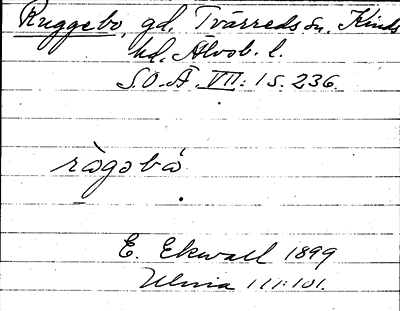 Ruggebo, gd. Tvärreds sn, Kinds
hd, Älvsb. l.
S.O.Ä. VII:1 s. 236.
rùgǝbó
E. Ekwall 1899
Ulma 111:101.